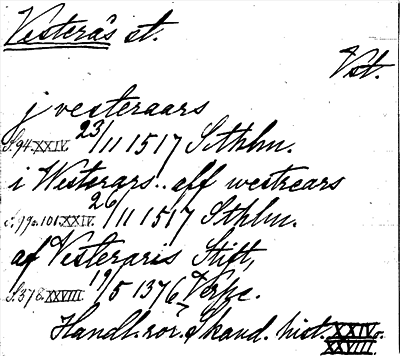 Vesterås st.
Vst.
j vesteraars
S. 94. XXIV. 23/11 1517 Sthlm.
i Westerars .. aff westrears
S. 99 o. 101. XXIV. 26/11 1517 Sthlm.
af Vesteraris Stift,
S. 37 XXVIII. 19/5 1376
Handl. rör. Skand. hist. XXIV o.
XXVIII.